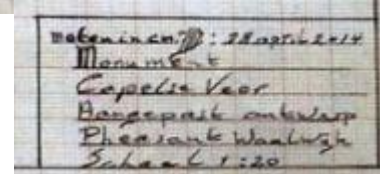 maten in cm : 28 april 2014
Monument
Capelse Veer
Aangepast ontwerp
Pheasant Waalwijk
Schaal 1:20